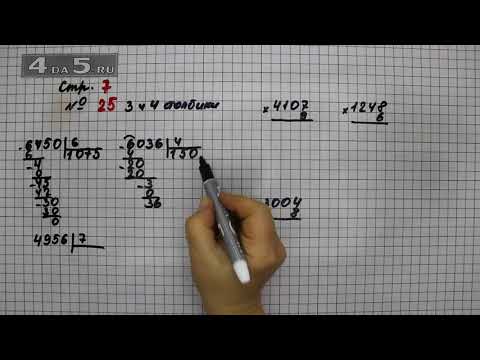 4DA5.RU
Стр. 7
№ 25 3 и 4 столбики
- 6450 | 6
6 | 1075
- 4
0
- 45
42
- 30
30
0
- 6036 | 4
4 | 150
- 20
20
- 3
0
36
4956 | 7
× 4107
8
× 1248
6
3004
8